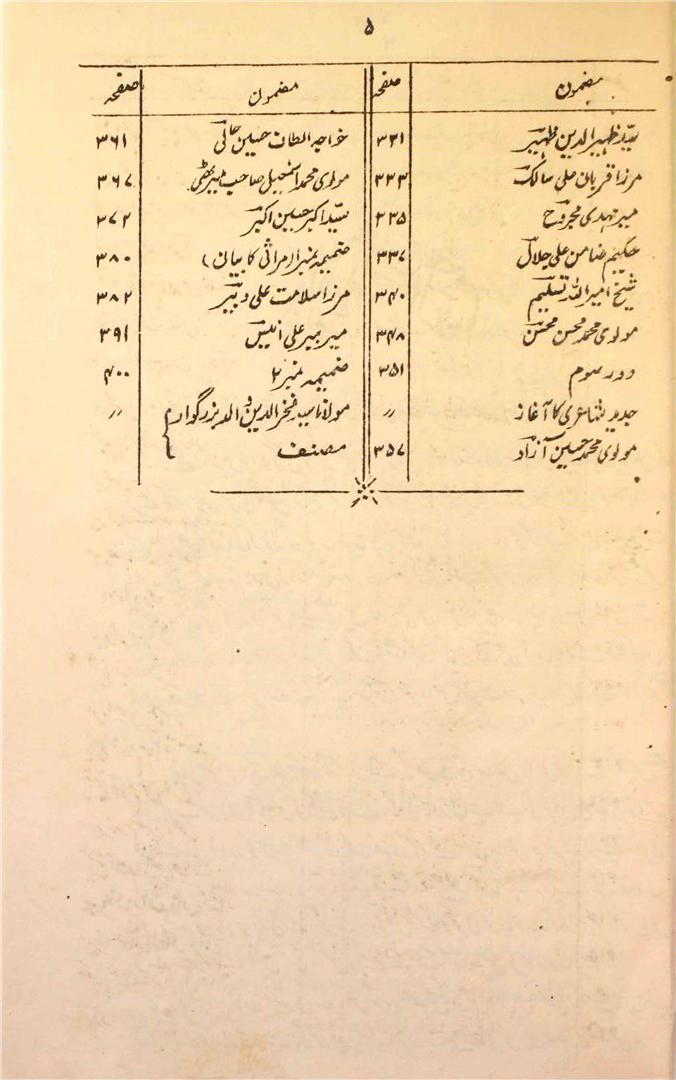 ۵
مضمون صفحہ مضمون صفحہ
سید ظہیرالدین ظہیر ۳۲۱ خواجہ الطاف حسین حالی ۳۶۱
مرزا قربان علی سالک ۳۳۳ مولوی محمد اسمٰعیل صاحب میرٹھی ۳۶۷
میر مہدی مجروح ۳۳۵ سید اکبر حسین اکبر ۳۷۲
حکیم ضامن علی جلال ۳۳۷ ضمیمہ نمبر۱ (مراثی کا بیان) ۳۸۰
شیخ امیر اللہ تسلیم ۳۴۰ مرزا سلامت علی دبیر ۳۸۲
مولوی محمد محسن محسن ۳۴۸ میر ببر علی انیس ۳۹۱
دور سوم ۳۵۱ ضمیمہ نمبر ۲ ۴۰۰
جدید شاعری کا آغاز 〃 مولانا سید فخرالدین والد بزرگوار 〃
مولوی محمد حسین آزاد ۳۵۷ مصنف